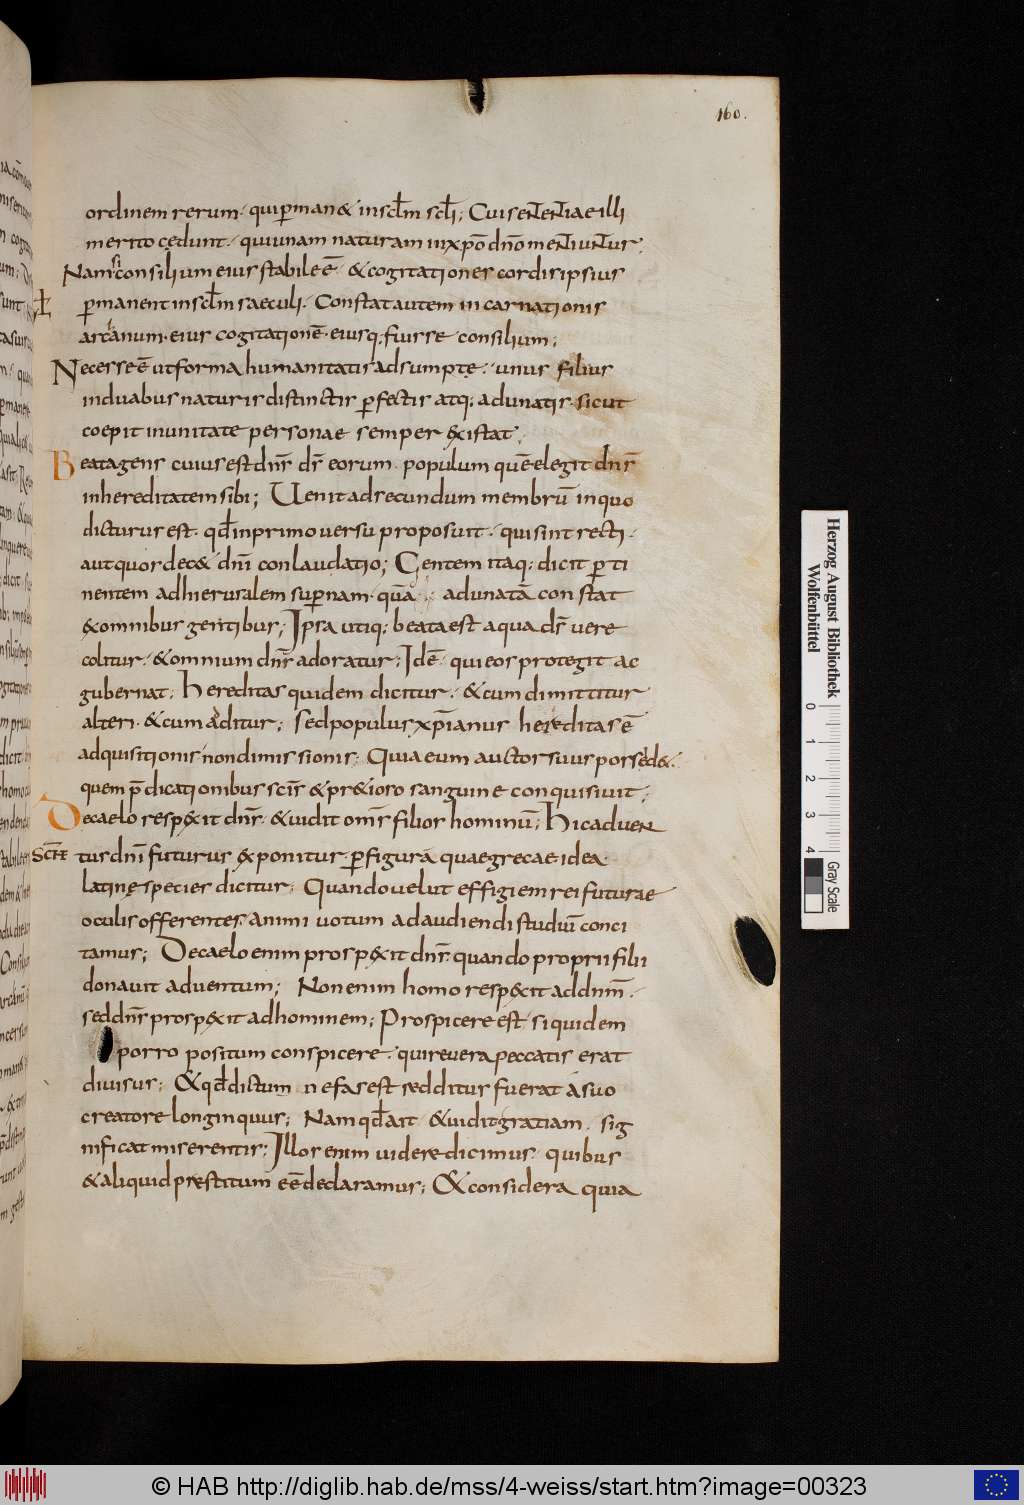 160.
ordinem rerum· qui p̄man& in sc̄lm sc̄li; Cui sententiae illi
merito cedunt· qui unam naturam in xp̄o dn̄o mentiuntur·
Nam si consilium eius stabile ē· & cogitationes cordis ipsius
p̄manent in sc̄lm saeculi· Constat autem incarnationis
arcanum· eius cogitationē· eiusq; fuisse consilium;
Necesse ē ut forma humanitatis adsumptę· unus filius
in duabus naturis distinctis p̄fectis atq; adunatis· sicut
coepit in unitate personae semper existat·
Beata gens cuius est dn̄s ds̄ eorum· populum quē elegit dn̄s
in hereditatem sibi; Uenit ad secundum membrū in quo
dicturus est· qd̄ in primo uersu proposuit· qui sint recti·
aut quos dec& dn̄i conlaudatio; Gentem itaq; dicit p̄ti
nentem ad hierusalem sup̄nam· quā adunatā constat
ex omnibus gentibus; Ipsa utiq; beata est a qua ds̄ uere
colitur· & omnium dn̄s adoratur; Idē· qui eos protegit ac
gubernat; Hereditas quidem dicitur· & cum dimittitur
alteri· & cum aditur; sed populus xp̄ianus hereditas ē
adquisitionis non dimissionis; Quia eum auctor suus possed&·
quem p̄dicationibus scīs & pr&ioso sanguine conquisiuit;
De caelo respexit dn̄s· & uidit om̄s filios hominū; Hic aduen
tus dn̄i futurus exponitur· p̄ figurā quae grecae idea
latinę species dicitur; Quando uelut effigiem rei futurae
oculis offerentes· animi uotum ad audiendi studiū conci
tamus; De caelo enim prospexit dn̄s· quando proprii filii
donauit aduentum; Non enim homo respexit ad dn̄m·
sed dn̄s prospexit ad hominem; Prospicere est siquidem
porro positum conspicere· qui reuera peccatis erat
diuisus; & qd̄ dictum nefas est redditur fuerat a suo
creatore longinquus; Nam qd̄ ait & uidit gratiam· sig
nificat miserentis; Illos enim uidere dicimus· quibus
& aliquid prestitum eē declaramus; & considera quia
Herzog August Bibliothek
Wolfenbüttel
0 1 2 3 4
Gray Scale
© HAB http://diglib.hab.de/mss/4-weiss/start.htm?image=00323